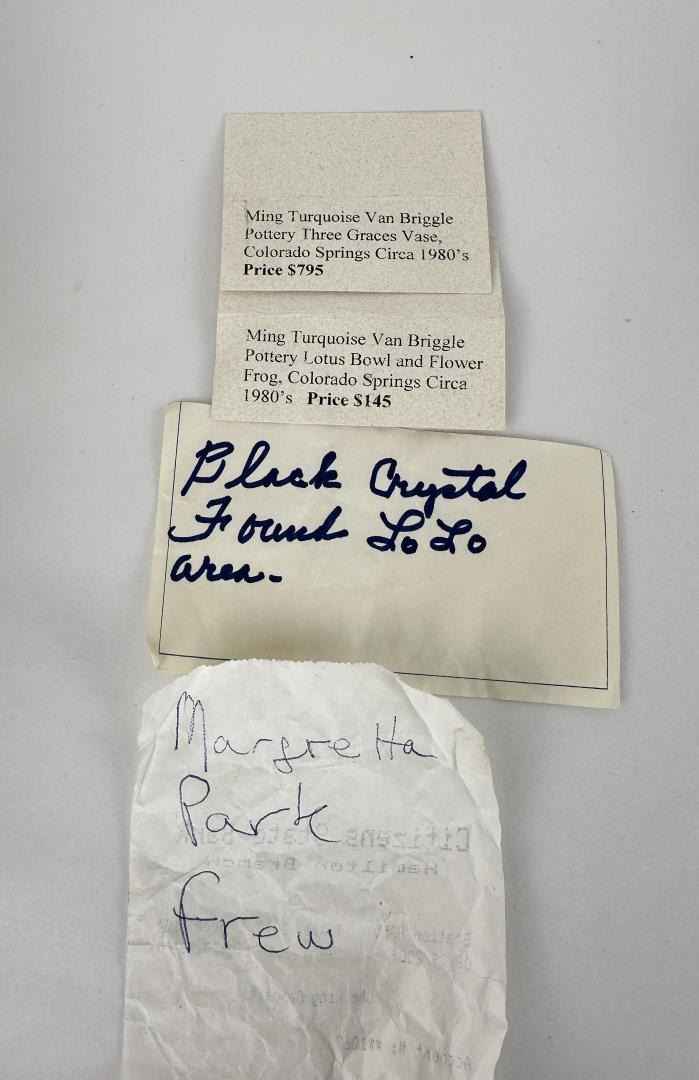 Ming Turquoise Van Briggle
Pottery Three Graces Vase,
Colorado Springs Circa 1980's
Price $795
Ming Turquoise Van Briggle
Pottery Lotus Bowl and Flower
Frog, Colorado Springs Circa
1980's Price $145
Black Crystal
Found LoLo
area.
Margretta
Park
Frew
Citizens State Bank
Hamilton Branch
Station
Account #: